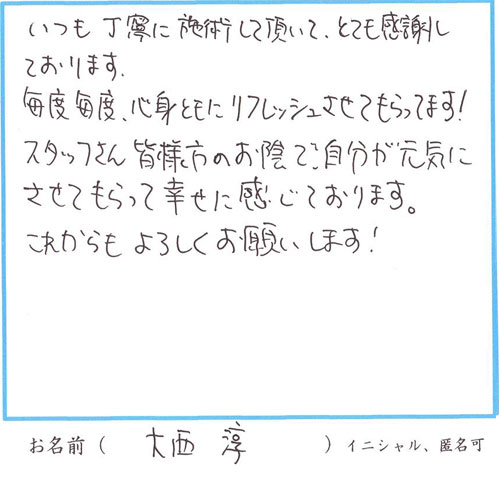 いつも丁寧に施術して頂いて、とても感謝し
ております。
毎度毎度、心身ともにリフレッシュさせてもらってます!
スタッフさん皆様方のお陰で、自分が元気に
させてもらって幸せに感じております。
これからもよろしくお願いします!
お名前 ( 大西 淳 ) イニシャル、匿名可